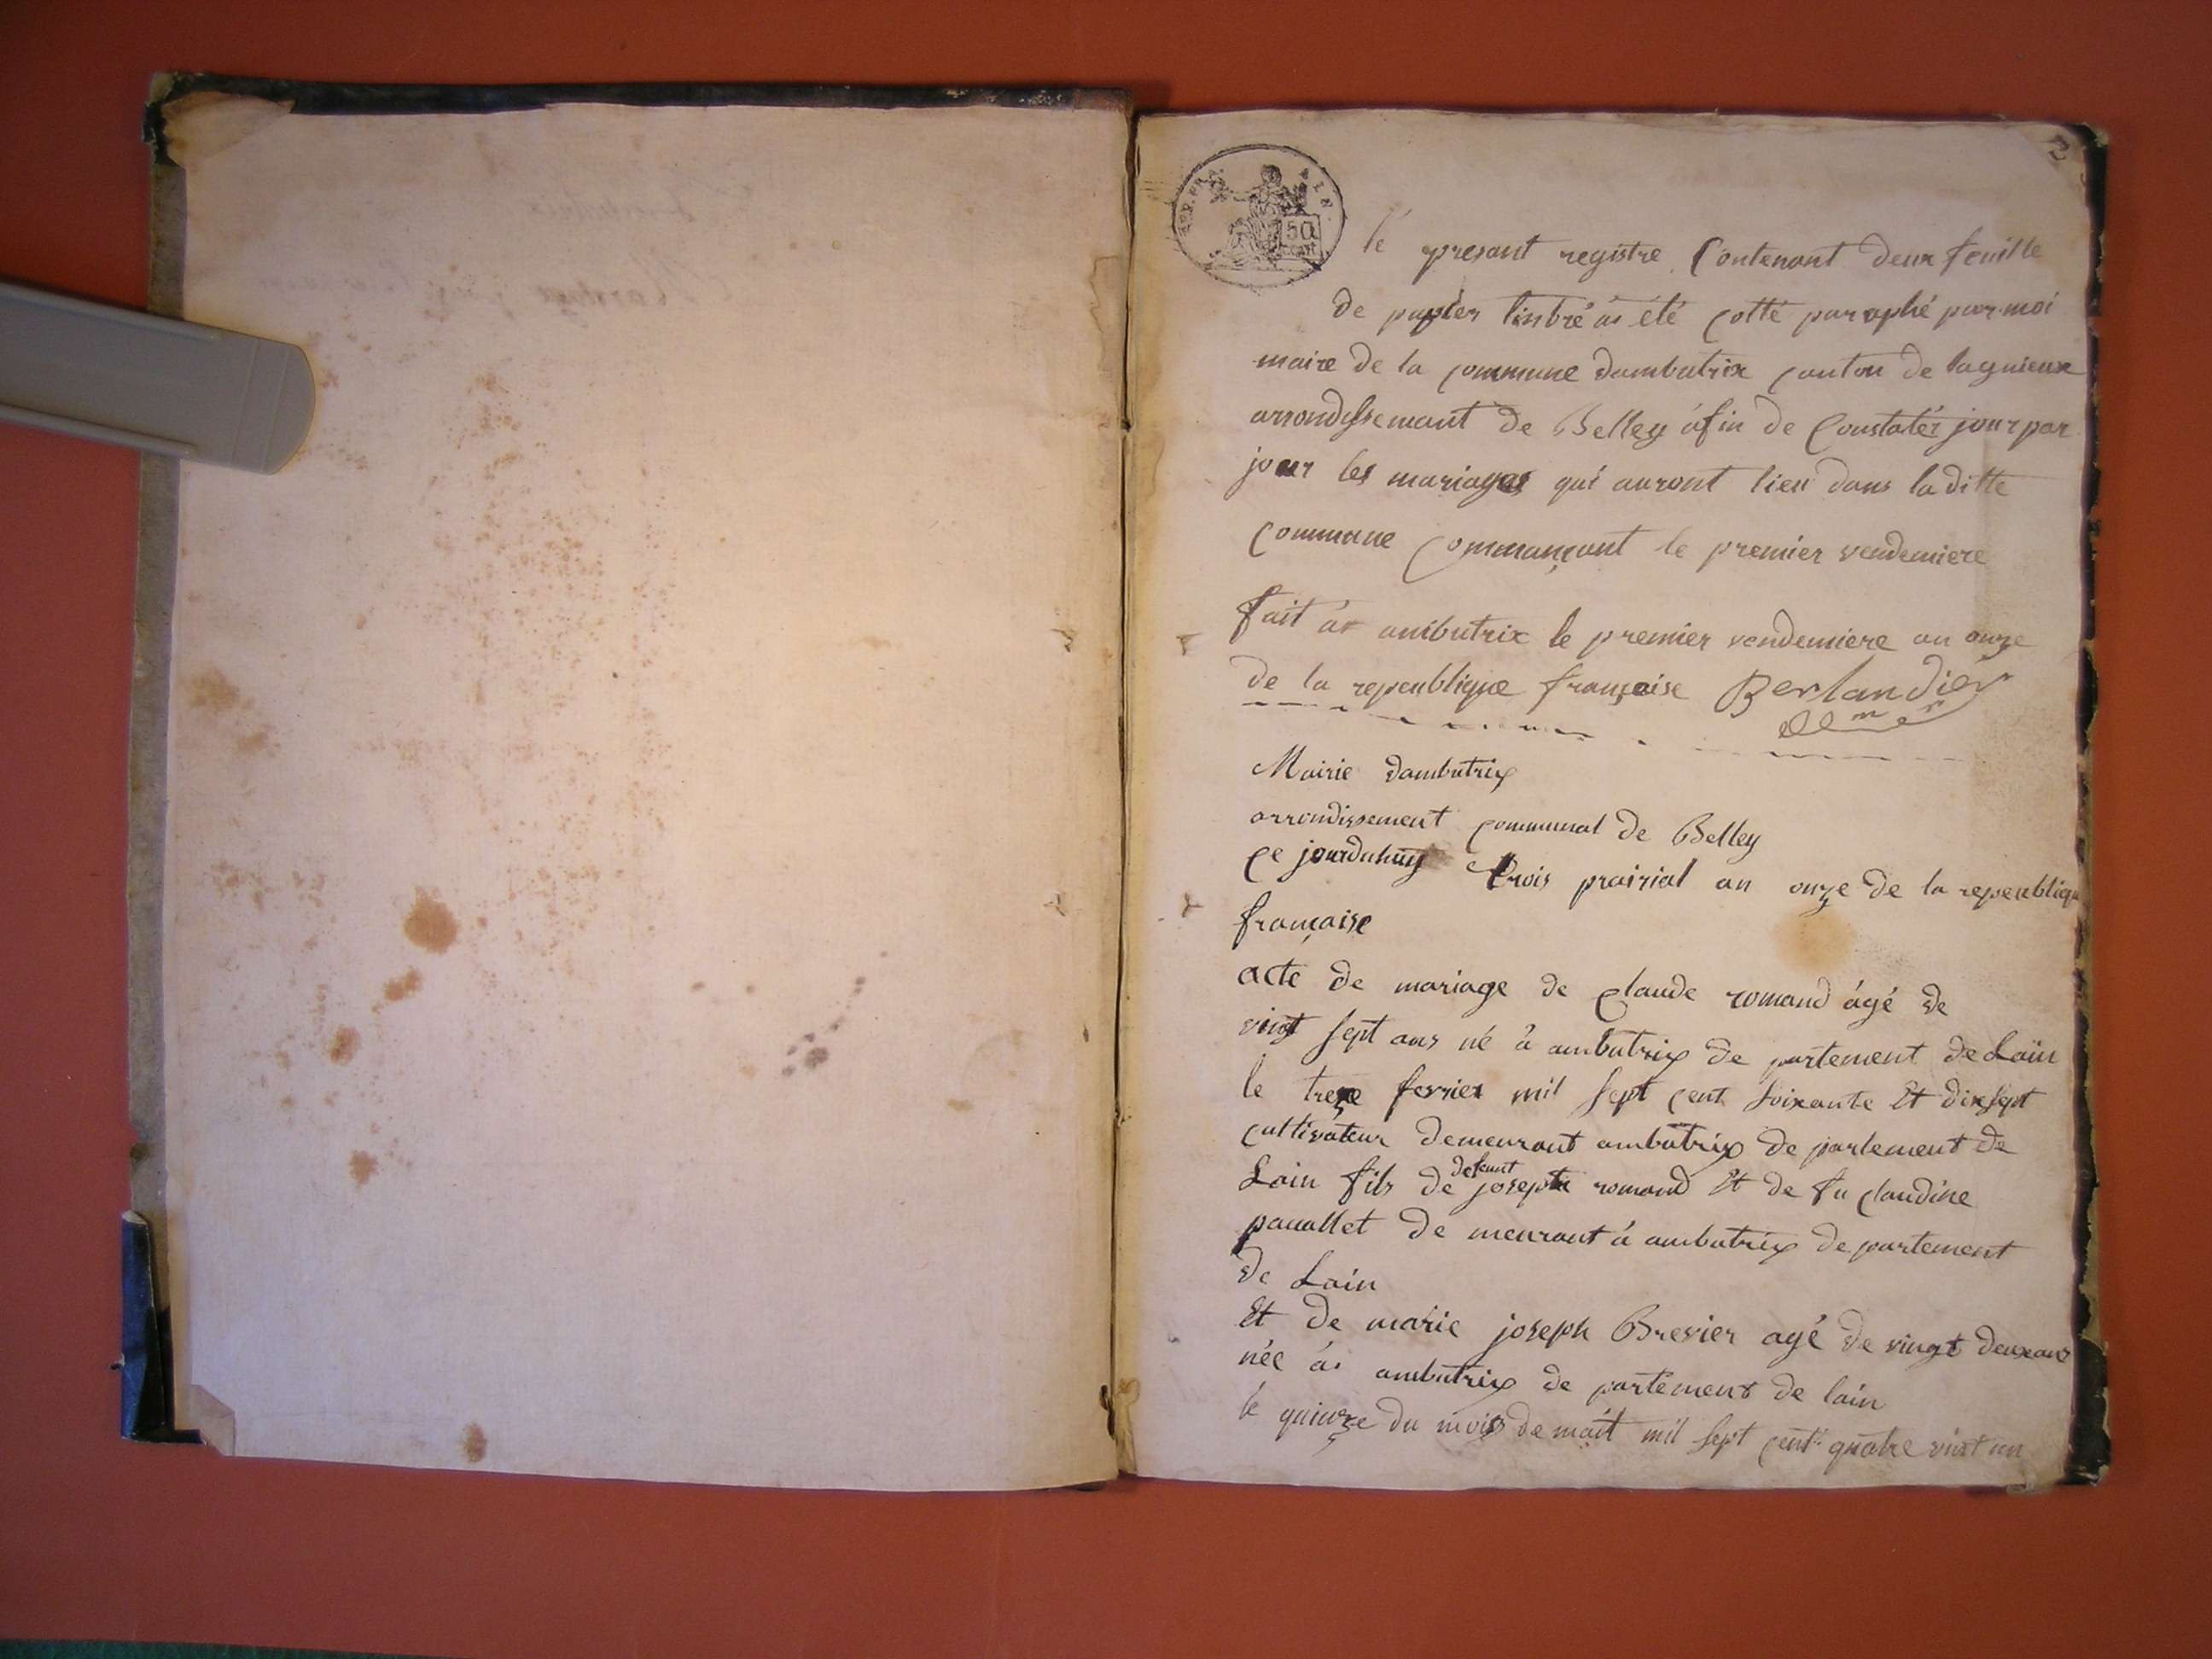 2
REP. FRA
50
le presant registre Contenant deux feuille
de papier timbré a été cotté paraphé par moi
maire de la commune dambutrix canton de lagnieux
arrondissemant de Belley áfin de Constatér jour par
jour les mariages qui auront lieu dans laditte
Commune Commançant le premier vendemiere
fait á ambutrix le premier vendemiere an onze
de la repeublique française Berlandier
Mairie dambutrix
arrondissement communal de Belley
Ce jourduhuy trois prairial an onze de la repeublique
française
acte de mariage de Claude romand ágé de
vingt sept ans né à ambutrix de partement de Lain
le treze fevrier mil sept cent soixante Et dix sept
cultivateur demeurant ambutrix de partement de
Lain fils de defeunt joseph romand Et de fu claudine
de meurant á ambutrix de partement
de Lain
Et de marie joseph Brevier agé de vingt deux ans
née á ambutrix de partement de lain
le quinze du mois de mait mil sept cent quatre vint un